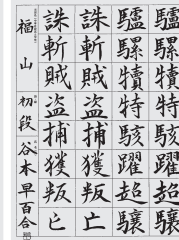 驢騾犢特駭躍超驤
驢騾犢特駭躍超驤
誅斬賊盗捕獲叛亡
誅斬賊盗捕獲叛亡
福山 初段 谷本早百合